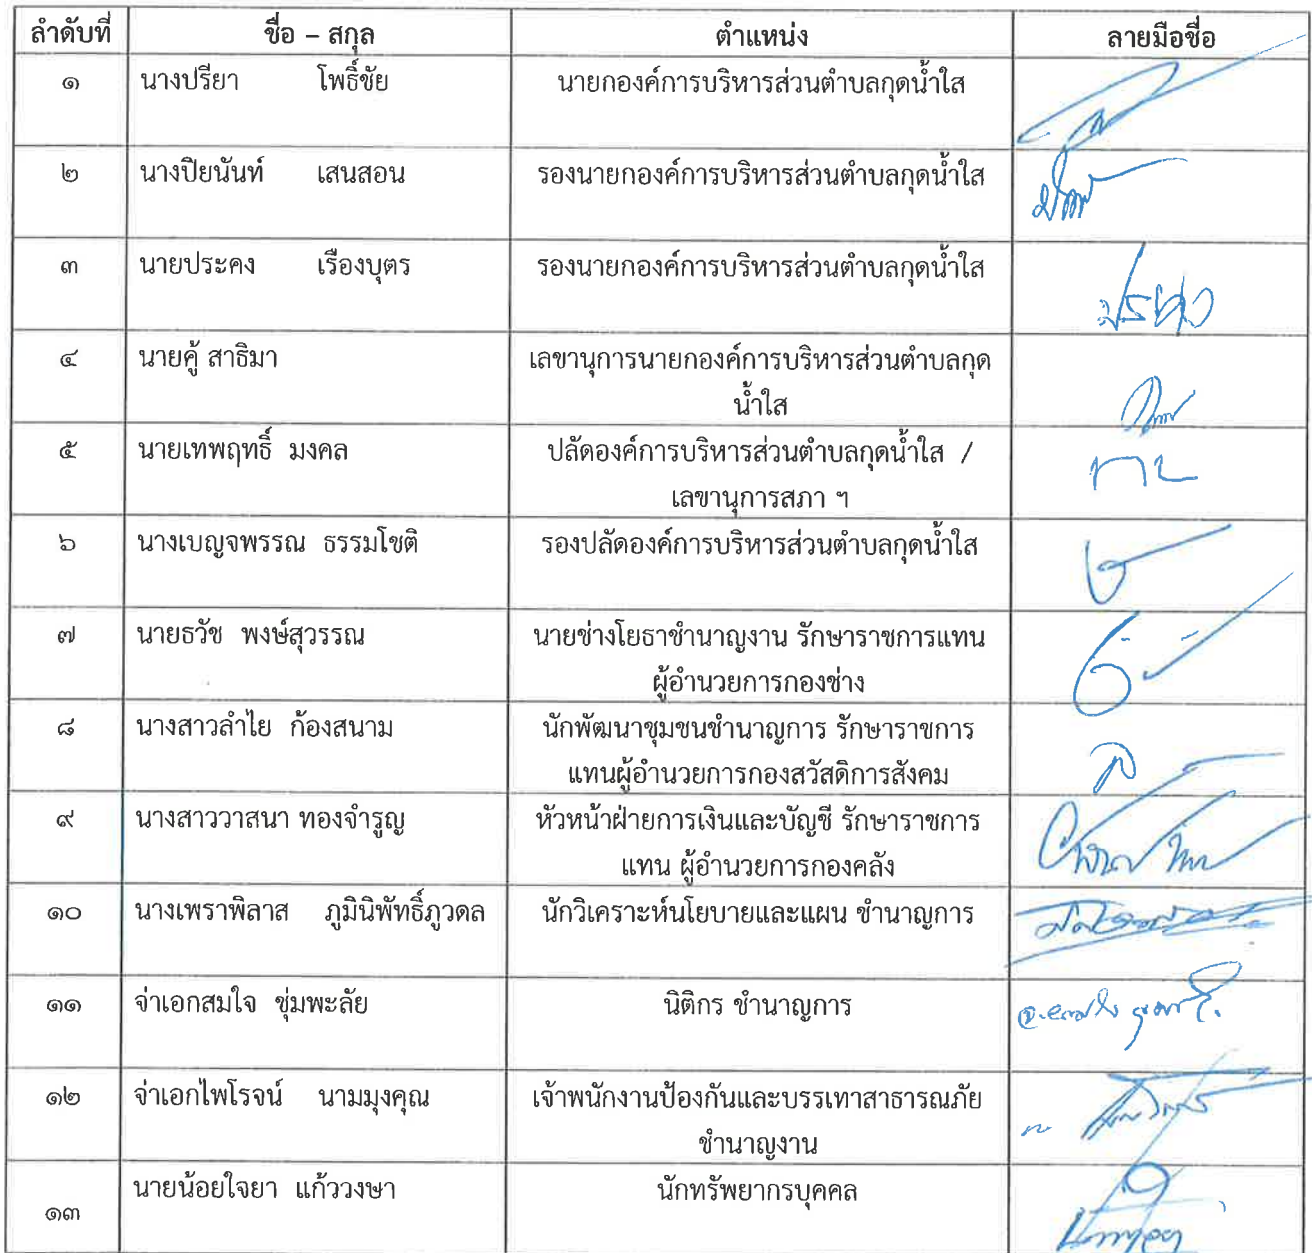 ลำดับที่ ชื่อ – สกุล ตำแหน่ง ลายมือชื่อ
๑ นางปรียา โพธิ์ชัย นายกองค์การบริหารส่วนตำบลกุดน้ำใส
๒ นางปิยนันท์ เสนสอน รองนายกองค์การบริหารส่วนตำบลกุดน้ำใส
๓ นายประคง เรืองบุตร รองนายกองค์การบริหารส่วนตำบลกุดน้ำใส
๔ นายคู้ สาธิมา เลขานุการนายกองค์การบริหารส่วนตำบลกุด
น้ำใส
๕ นายเทพฤทธิ์ มงคล ปลัดองค์การบริหารส่วนตำบลกุดน้ำใส /
เลขานุการสภา ฯ
๖ นางเบญจพรรณ ธรรมโชติ รองปลัดองค์การบริหารส่วนตำบลกุดน้ำใส
๗ นายธวัช พงษ์สุวรรณ นายช่างโยธาชำนาญงาน รักษาราชการแทน
ผู้อำนวยการกองช่าง
๘ นางสาวลำไย ก้องสนาม นักพัฒนาชุมชนชำนาญการ รักษาราชการ
แทนผู้อำนวยการกองสวัสดิการสังคม
๙ นางสาววาสนา ทองจำรูญ หัวหน้าฝ่ายการเงินและบัญชี รักษาราชการ
แทน ผู้อำนวยการกองคลัง
๑๐ นางเพราพิลาส ภูมินิพัทธิ์ภูวดล นักวิเคราะห์นโยบายและแผน ชำนาญการ
๑๑ จ่าเอกสมใจ ชุ่มพะลัย นิติกร ชำนาญการ
๑๒ จ่าเอกไพโรจน์ นามมุงคุณ เจ้าพนักงานป้องกันและบรรเทาสาธารณภัย
ชำนาญงาน
๑๓ นายน้อยใจยา แก้ววงษา นักทรัพยากรบุคคล